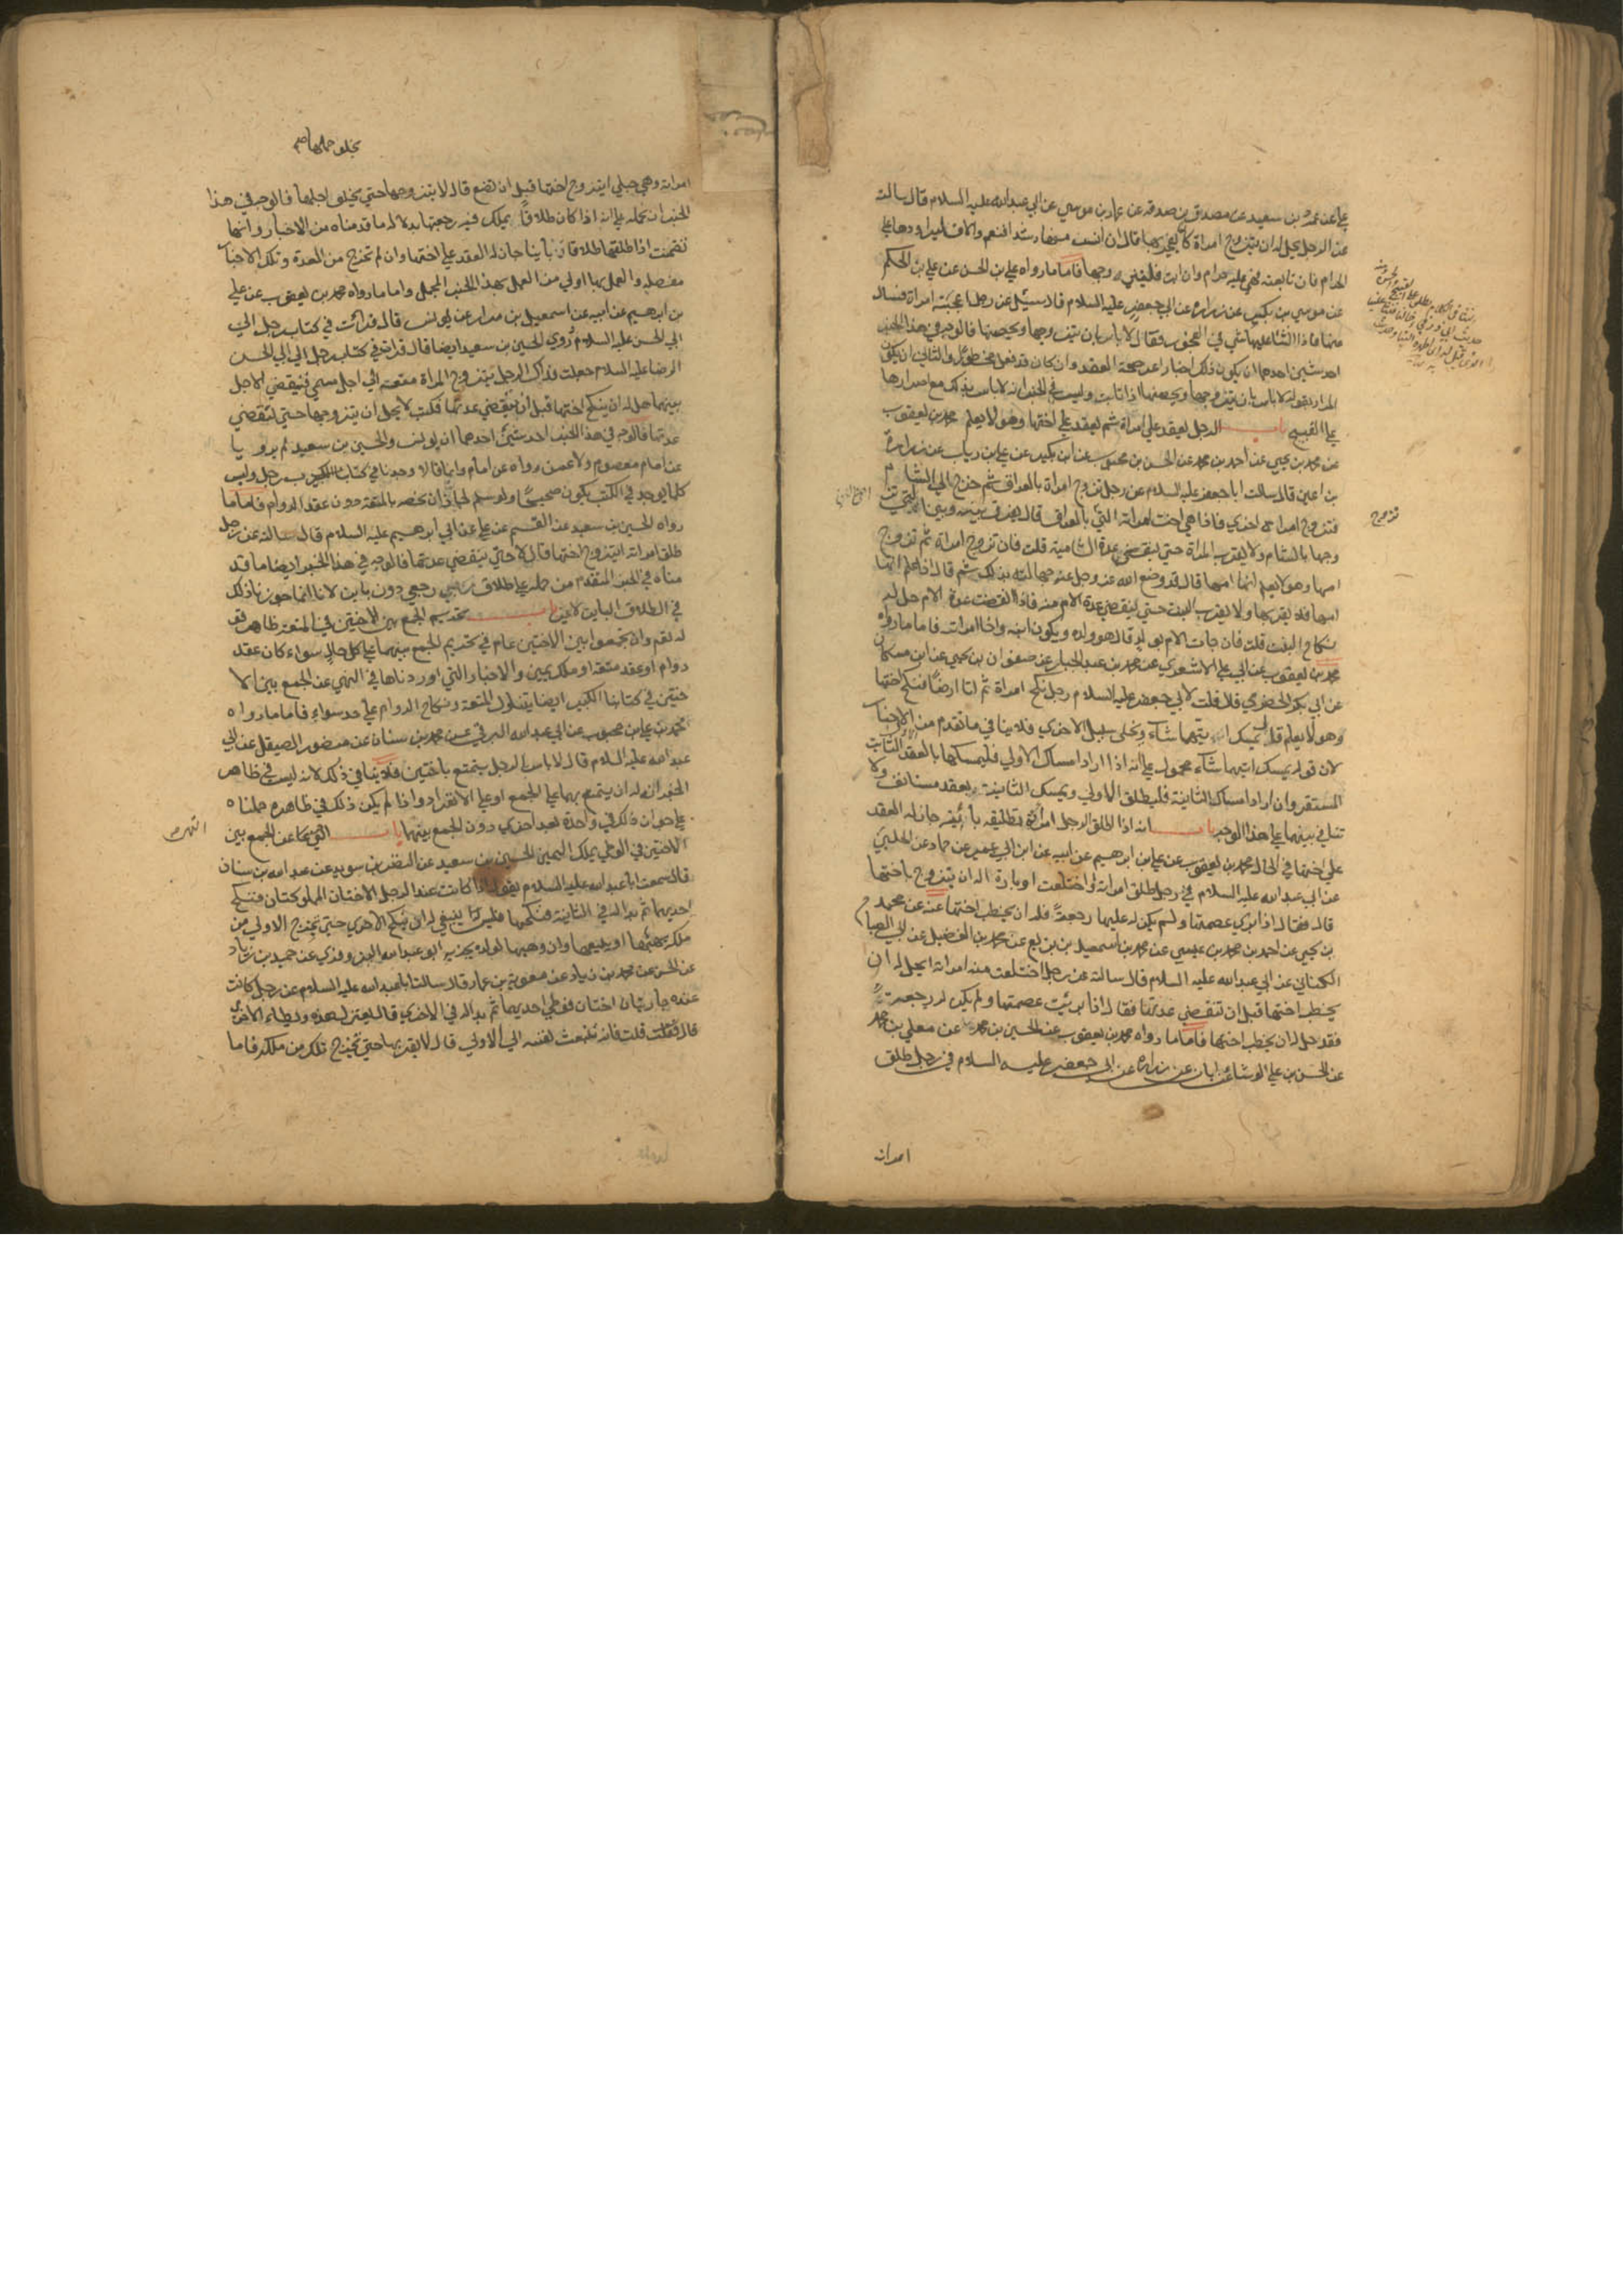 علي عن عمرو بن سعيد عن مصدق بن صدقه عن عمار بن موسي عن ابي عبدالله عليه السلام قال سالته
عن الرجل يحل له ان يتزوج امراة كان يفجر بها قال ان انس منها رشدا فنعم والا فليراودها علي
الحرام فان تابعته فهي عليه حرام وان ابت فليتزوجها فاما ما رواه علي بن الحسن عن علي بن الحكم
عن موسي بن بكير عن زرارة عن ابي جعفر عليه السلام قال سئل عن رجل اعجبته امراة فسال
عنها فاذا الثنا عليها شي في الفجور فقال لا باس بان يتزوجها ويحصنها فالوجه في هذا الخبر
احد شيئين احدهما ان يكون ذلك اخبارا عن صحة العقد وان كان قد فعل محظورا والثاني ان يكون
المراد بقوله لا باس بان يتزوجها ويحصنها اذا تابت وليس في الخبر انه لا باس بذلك مع اصرارها
علي القبيح باب الرجل يعقد علي امراة ثم يعقد علي اختها وهو لا يعلم محمد بن يعقوب
عن محمد بن يحيي عن احمد بن محمد عن الحسن بن محبوب عن ابن بكير عن علي بن رياب عن زرارة
بن اعين قال سالت ابا جعفر عليه السلام عن رجل تزوج امراة بالعراق ثم خرج الي الشام
فتزوج امراة اخري فاذا هي اخت امراته التي بالعراق قال يفرق بينه وبين التي تز
وجها بالشام ولا يقرب المراة حتي تنقضي عدة الشامية قلت فان تزوج امراة ثم تزوج
امها وهو لا يعلم انها امها قال قد وضع الله عز وجل عنه جهالته بذلك ثم قال اذا علم انها
امها فلا يقربها ولا يقرب البنت حتي تنقضي عدة الام منه فاذا انقضت عدة الام حل له
نكاح البنت قلت فان جات الام بولد قال هو ولده ويكون ابنه واخا امراته فاما ما رواه
محمد بن يعقوب عن ابي علي الاشعري عن محمد بن عبد الجبار عن صفوان بن يحيي عن ابن مسكان
عن ابي بكر الحضرمي قال قلت لابي جعفر عليه السلام رجل نكح امراة ثم اتا ارضا فنكح اختها
وهو لا يعلم قال يمسك ايتهما شاء ويخلي سبيل الاخري فلا ينافي ما تقدم من الاخبار
لان قوله يمسك ايتهما شاء محمول علي انه اذا اراد امساك الاولي فليمسكها بالعقد الثابت
المستقر وان اراد امساك الثانية فليطلق الاولي ويمسك الثانية بعقد مستانف ولا
تنافي بينهما علي هذا الوجه باب انه اذا طلق الرجل امراته تطليقه باينه جاز له العقد
علي اختها في الحال محمد بن يعقوب عن علي بن ابرهيم عن ابيه عن ابن ابي عمير عن حماد عن الحلبي
عن ابي عبدالله عليه السلام في رجل طلق امراته او اختلعت او بارة اله ان يتزوج باختها
قال فقال اذا بري عصمتها ولم يكن له عليها رجعة فله ان يخطب اختها عنه عن محمد
بن يحيي عن احمد بن محمد بن عيسي عن محمد بن اسمعيل بن بزيع عن محمد بن الفضيل عن ابي الصباح
الكناني عن ابي عبدالله عليه السلام قال سالته عن رجل اختلعت منه امراته ايحل له ان
يخطب اختها قبل ان تنقضي عدتها فقال اذا برئت عصمتها ولم يكن له رجعة
فقد حل له ان يخطب اختها فاما ما رواه محمد بن يعقوب عن الحسين بن محمد عن معلي بن محمد
عن الحسن بن علي الوشا عن ابان عن زرارة عن ابي جعفر عليه السلام في رجل طلق
امراته
امراته وهي حبلي ايتزوج اختها قبل ان تضع قال لا يتزوجها حتي يخلو اجلها فالوجه في هذا
الخبر ان نحمله علي انه اذا كان طلاقا يملك فيه رجعتها بدلالة ما قدمناه من الاخبار وانها
تضمنت اذا طلقها طلاقا باينا جاز له العقد علي اختها وان لم تخرج من العدة وتلك الاخبار
مفصله والعمل بها اولي من العمل بهذا الخبر المجمل واما ما رواه محمد بن يعقوب عن علي
بن ابرهيم عن ابيه عن اسمعيل بن مرار عن يونس قال قرات في كتاب رجل الي
ابي الحسن عليه السلام وروي الحسين بن سعيد ايضا قال قرات في كتاب رجل الي ابي الحسن
الرضا عليه السلام جعلت فداك الرجل يتزوج المراة متعة الي اجل مسمي فينقضي الاجل
بينهما هل له ان ينكح اختها قبل ان تنقضي عدتها فكتب لا يحل ان يتزوجها حتي تنقضي
عدتها فالوجه في هذا الخبر احد شيئين احدهما ان يونس والحسين بن سعيد لم يرويا
عن امام معصوم ولا عمن رواه عن امام وانما قالا وجدنا في كتاب رجل وليس
كلما يوجد في الكتب يكون صحيحا ولو سلم لجاز ان نخصه بالمتعة دون عقد الدوام فاما ما
رواه الحسين بن سعيد عن القسم عن علي عن ابي ابرهيم عليه السلام قال سالته عن رجل
طلق امراته ايتزوج اختها قال لا حتي تنقضي عدتها فالوجه في هذا الخبر ايضا ما قد
مناه في الخبر المتقدم من حمله علي طلاق رجعي دون باين لانا انما جوزنا ذلك
في الطلاق الباين لا غير باب تحريم الجمع بين الاختين في المتعة ظاهر قو
له تعم وان تجمعوا بين الاختين عام في تحريم الجمع بينهما علي كل حال سواء كان عقد
دوام او عقد متعة او ملك يمين والاخبار التي اوردناها في النهي عن الجمع بين الا
ختين في كتابنا الكبير ايضا يتناول المتعة ونكاح الدوام علي حد سواء فاما ما رواه
محمد بن علي بن محبوب عن ابي عبدالله البرقي عن محمد بن سنان عن منصور الصيقل عن ابي
عبدالله عليه السلام قال لا باس الرجل يتمتع باختين فلا ينافي ذلك لانه ليس في ظاهر
الخبر ان له ان يتمتع بهما علي الجمع او علي الانفراد واذا لم يكن ذلك في ظاهره حملناه
علي جواز ذلك في واحدة بعد اخري دون الجمع بينهما باب النهي عن الجمع بين
الاختين في الوطي بملك اليمين الحسين بن سعيد عن النضر بن سويد عن عبدالله بن سنان
قال سمعت ابا عبدالله عليه السلام يقول اذا كانت عند الرجل الاختان المملوكتان فنكح
احديهما ثم بدا له في الثانية فنكحها فليس ينبغي له ان ينكح الاخري حتي تخرج الاولي من
ملكه يهبها او يبيعها وان وهبها لولده يجزيه ابو عبدالله البزوفري عن حميد بن زياد
عن الحسن عن محمد بن زياد عن معوية بن عمار قال سالت ابا عبدالله عليه السلام عن رجل كانت
عنده جاريتان اختان فوطي احديهما ثم بدا له في الاخري قال يعتزل هذه ويطاء الاخري
قال قلت فانه تنبعث نفسه الي الاولي قال لا يقربها حتي تخرج تلك من ملكه فاما